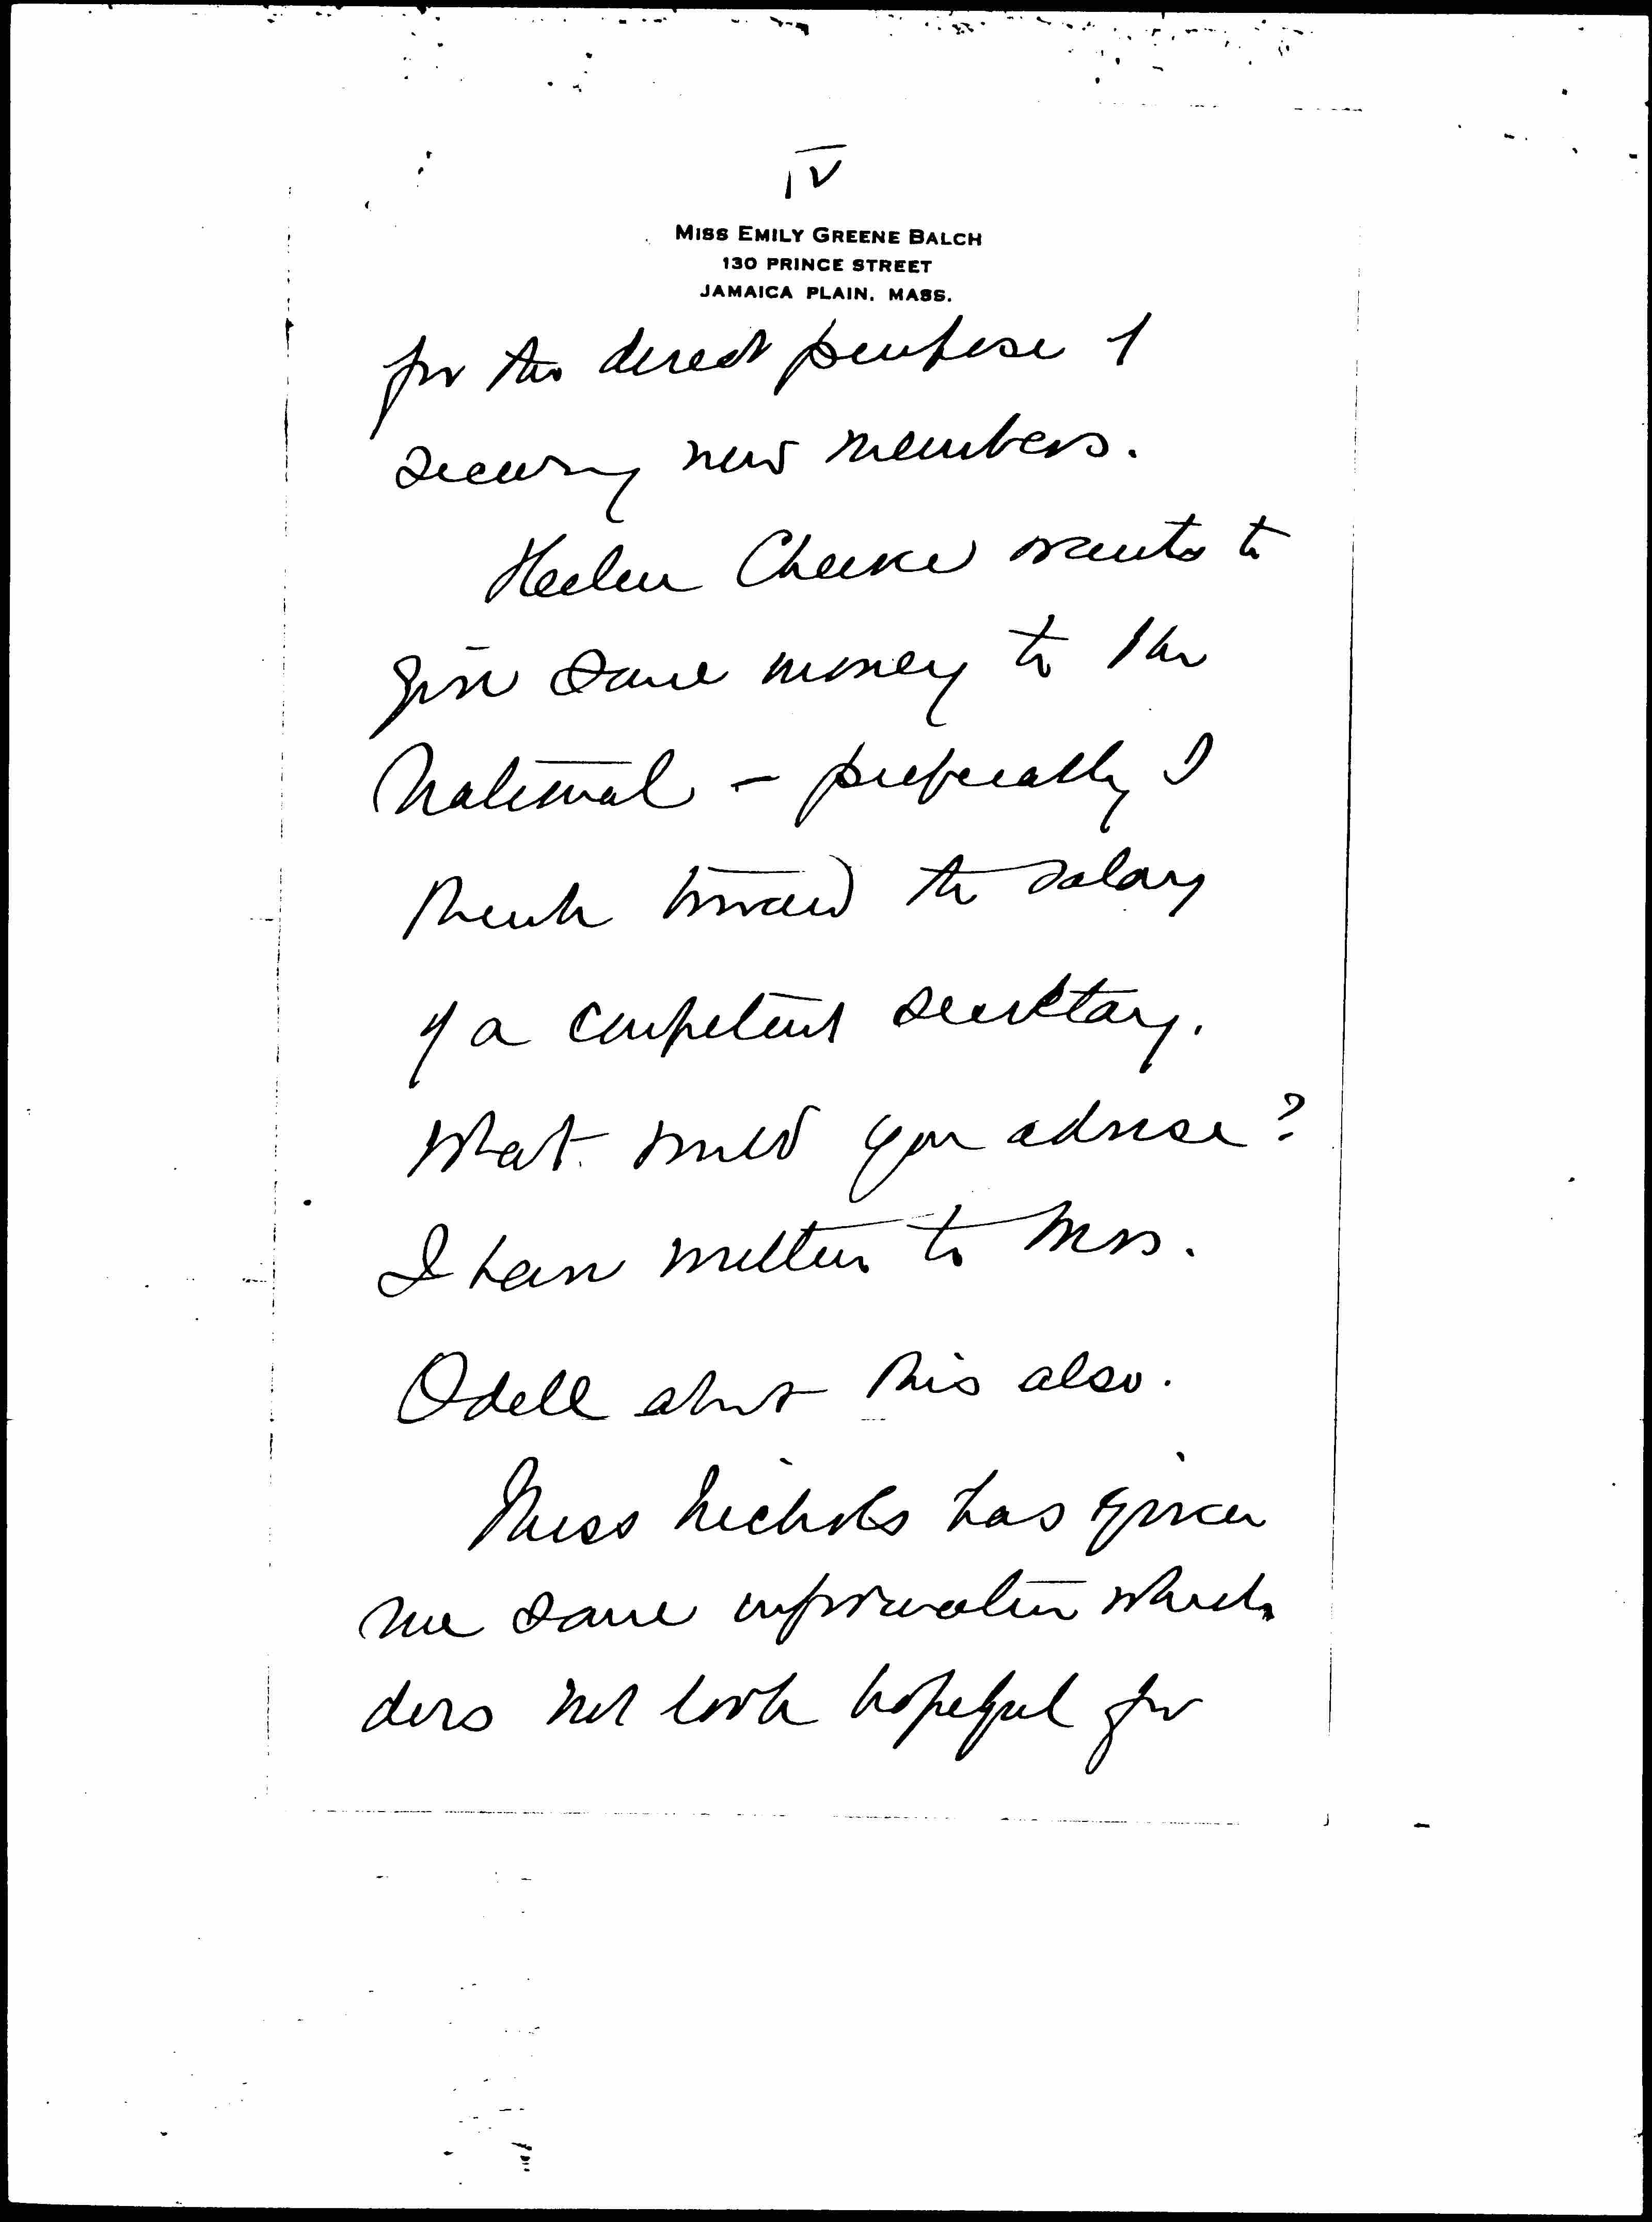 IV
MISS EMILY GREENE BALCH
130 PRINCE STREET
JAMAICA PLAIN, MASS.
for the direct purpose of
securing new members.
Helen Cheever wants to
give some money to the
National - preferably I
think toward the salary
of a competent secretary.
What would you advise?
I have written to Mrs.
Odell about this also.
Miss Nichols has given
me some information which
does not look hopeful for